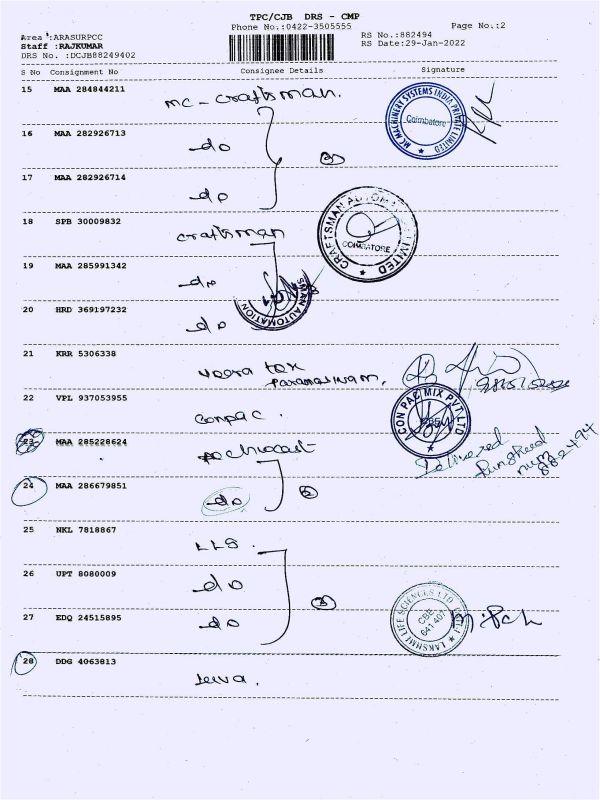 TPC/CJB DRS - CMP
Phone No.:0422-3505555
Page No.:2
Area :ARASURPCC
Staff :RAJKUMAR
DRS No. :DCJB88249402
RS No.:882494
RS Date:29-Jan-2022
S No Consignment No Consignee Details Signature
15 MAA 284844211 mc - craftsman.
MC MACHINERY SYSTEMS INDIA PRIVATE LIMITED
Coimbatore
16 MAA 282926713 do
17 MAA 282926714 do
18 SPB 30009832 craftsman
CRAFTSMAN AUTOMATION LIMITED
COIMBATORE
19 MAA 285991342 do
20 HRD 369197232 do
21 KRR 5306338 veera tex
22 VPL 937053955 conpac.
CON PAC MIX PVT LTD
23 MAA 285228624
Delivered
882494
24 MAA 286679851 do
25 NKL 7818867 LLS.
26 UPT 8080009 do
27 EDQ 24515895 do
LAKSHMI LIFE SCIENCES LTD
CBE
641 407
28 DDG 4063813